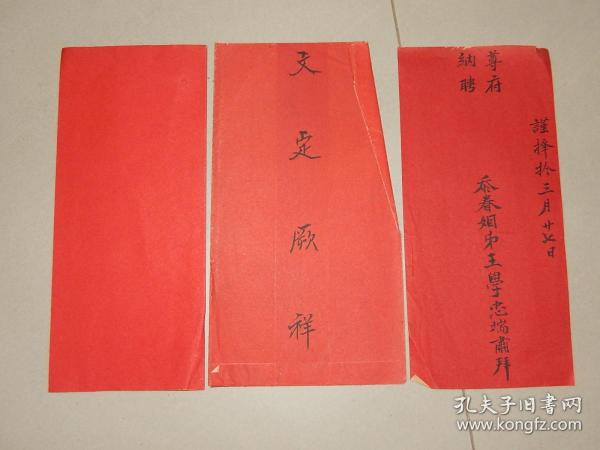 文定厥祥
謹擇於三月廿七日
尊府
納聘
忝眷姻弟王學忠端肅拜
孔夫子旧书网
www.kongfz.com